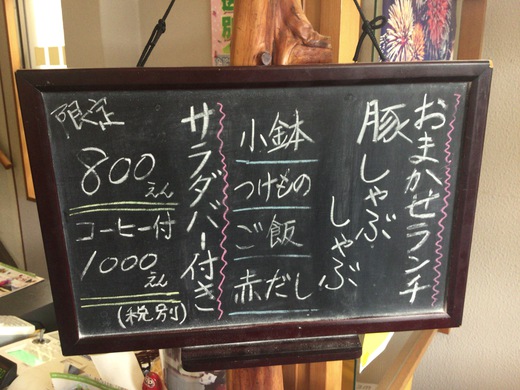 おまかせランチ
豚しゃぶしゃぶ
小鉢
つけもの
ご飯
赤だし
サラダバー付き
限定
800えん
コーヒー付
1000えん
(税別)